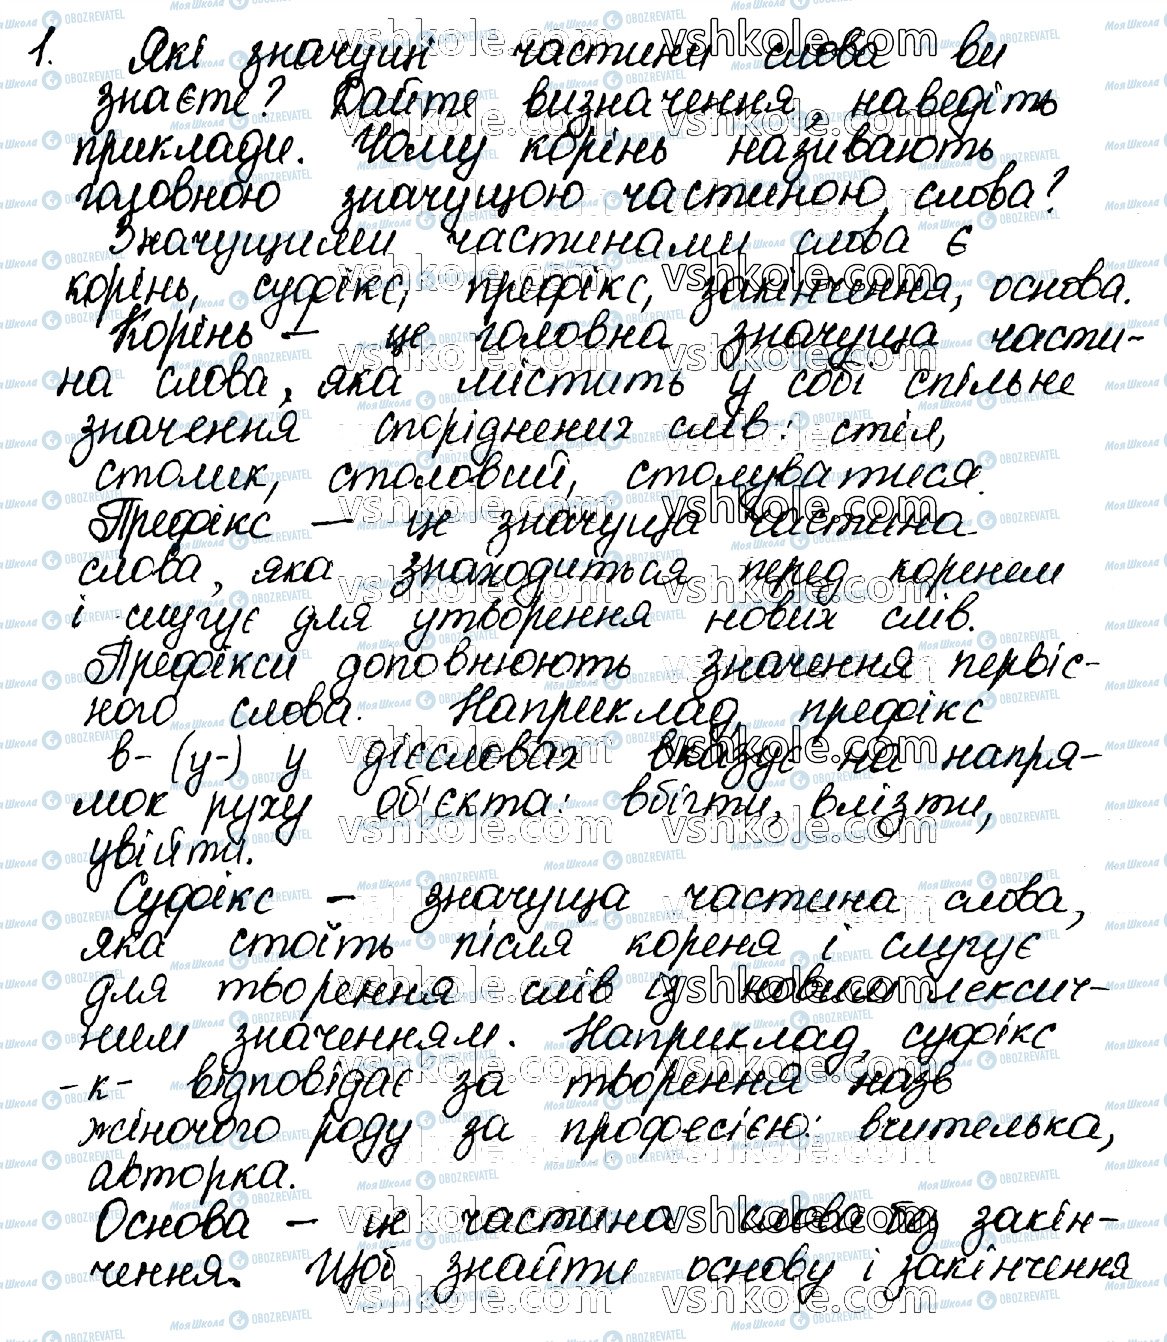 1. Які значущі частини слова ви
знаєте? Дайте визначення, наведіть
приклади. Чому корінь називають
головною значущою частиною слова?
Значущими частинами слова є
корінь, суфікс, префікс, закінчення, основа.
Корінь – це головна значуща части-
на слова, яка містить у собі спільне
значення споріднених слів: стіл,
столик, столовий, столуватися.
Префікс – це значуща частина
слова, яка знаходиться перед коренем
і слугує для утворення нових слів.
Префікси доповнюють значення первіс-
ного слова. Наприклад, префікс
в- (у-) у дієсловах вказує на напря-
мок руху об'єкта: вбігти, влізти,
увійти.
Суфікс – значуща частина слова,
яка стоїть після кореня і слугує
для творення слів із новим лексич-
ним значенням. Наприклад, суфікс
-к- відповідає за творення назв
жіночого роду за професією: вчителька,
авторка.
Основа – це частина слова без закін-
чення. Щоб знайти основу і закінчення